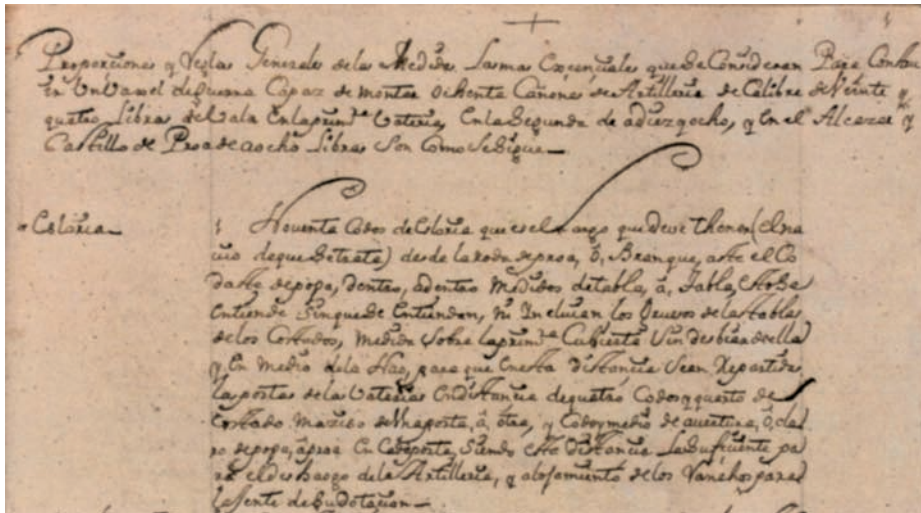 Proporciones y Reglas Generales de las Medidas Las mas Esenciales que se Consideran Para Constru
ir Un Vaxel de guerra Capaz de montar ochenta Cañones de Artilleria de Calibre de Veinte y
quatro Libras de Vala En la prim.ra Vateria, En la Segunda de a diez y ocho, y En el Alcazar y
Castillo de Proa de a ocho Libras Son Como Se Sigue
Esloria
1 Noventa Codos de Esloria que es el Largo que deve thener (el na
vio de que Se trata) desde la roda de proa, ô, Branque, asta el Co
daste de popa, dentro, adentro Medidos de tabla, â, tabla, esto Se
entiende Sin que Se Entiendan, ni Incluian los Gruesos de las tablas
de los Costados, medidos Sobre la prim.ra Cubierta Sin desbiar de ella
y En medio de la Nao, para que En esta distancia Sean Repartidas
las portas de las Vaterias En distancia de quatro Codos y quarto de
Costado Mazizo de Una porta, â, otra, y Codo y medio de avertura, ô, cla
ro de popa, â, proa En Cada porta, Siendo esta distancia La Suficiente pa
ra el desahogo de la Artilleria, y alojamiento de los Ranchos para
la Jente de Su dotacion